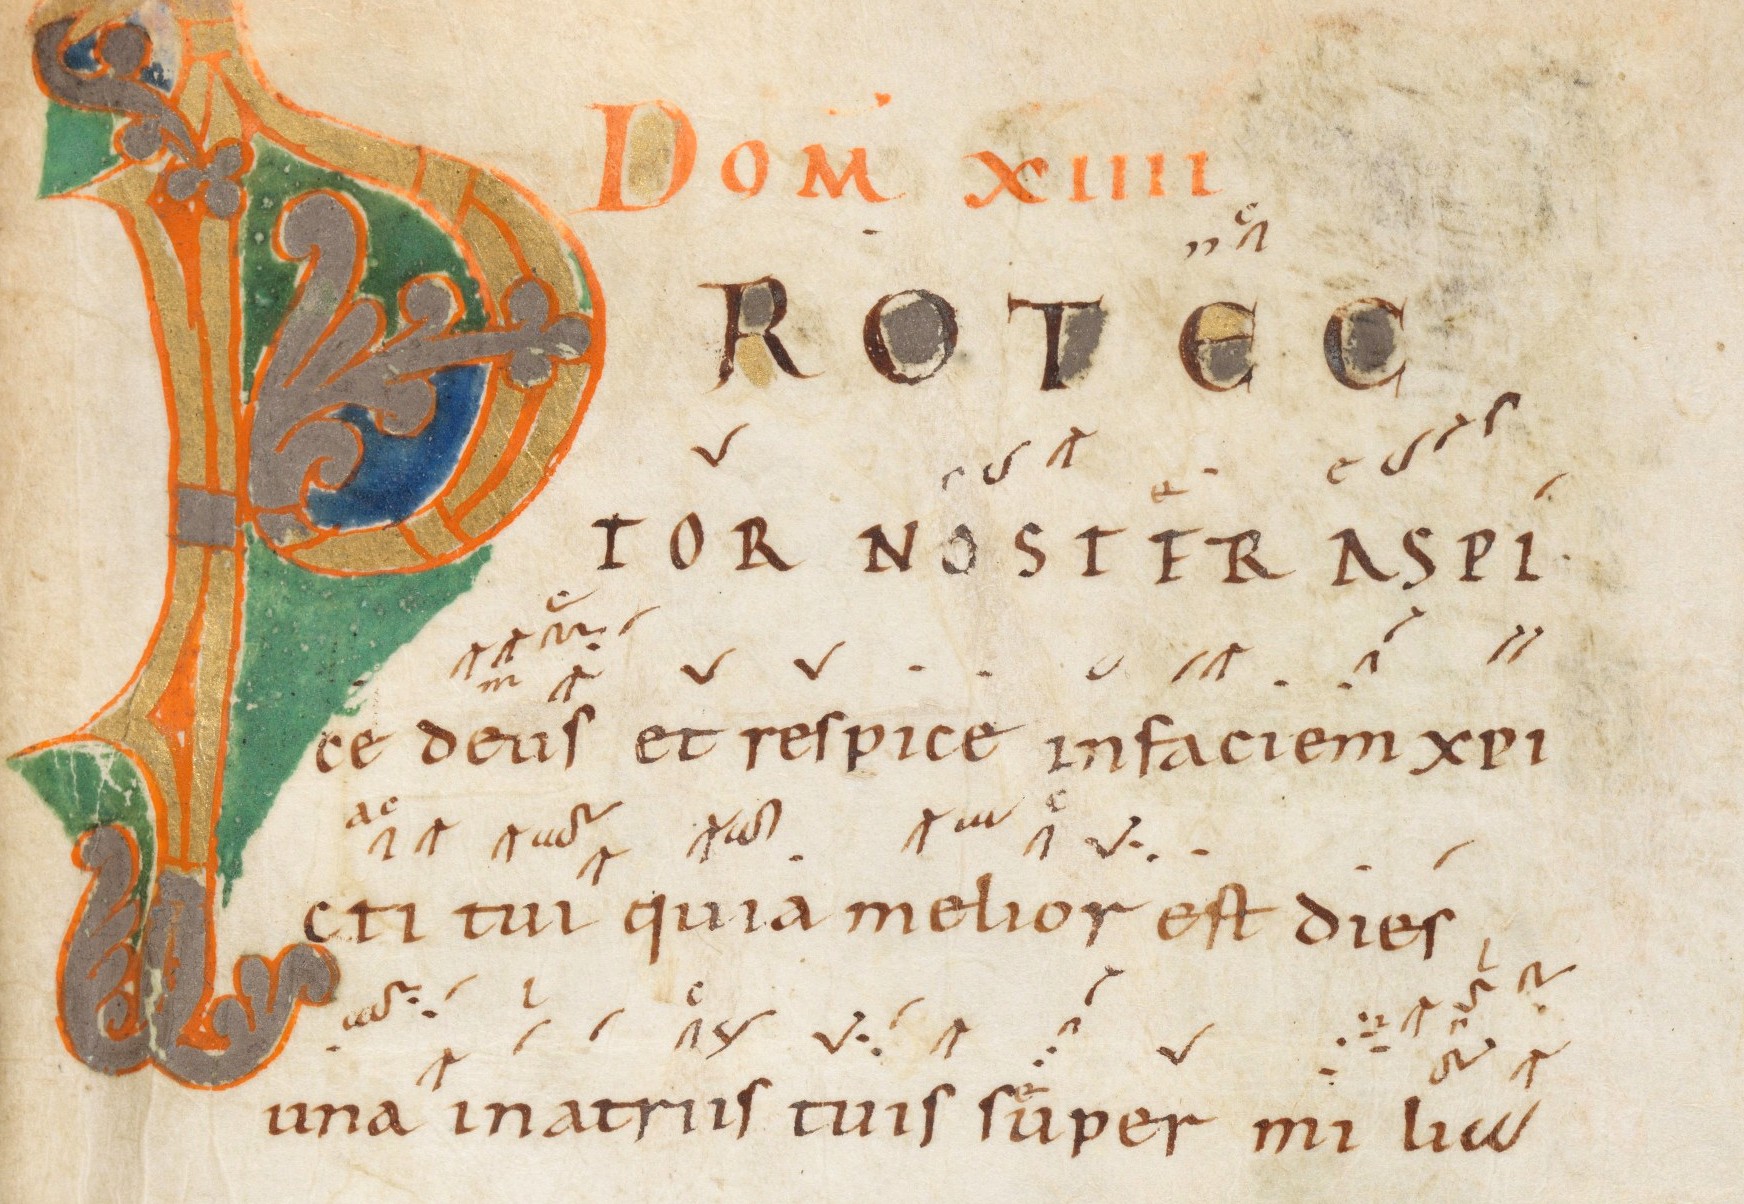 Dom XIIII
PROTEC
TOR NOSTER ASPI
ce deus et respice infaciem xpi
cti tui quia melior est dies
una inatriis tuis super mi lia